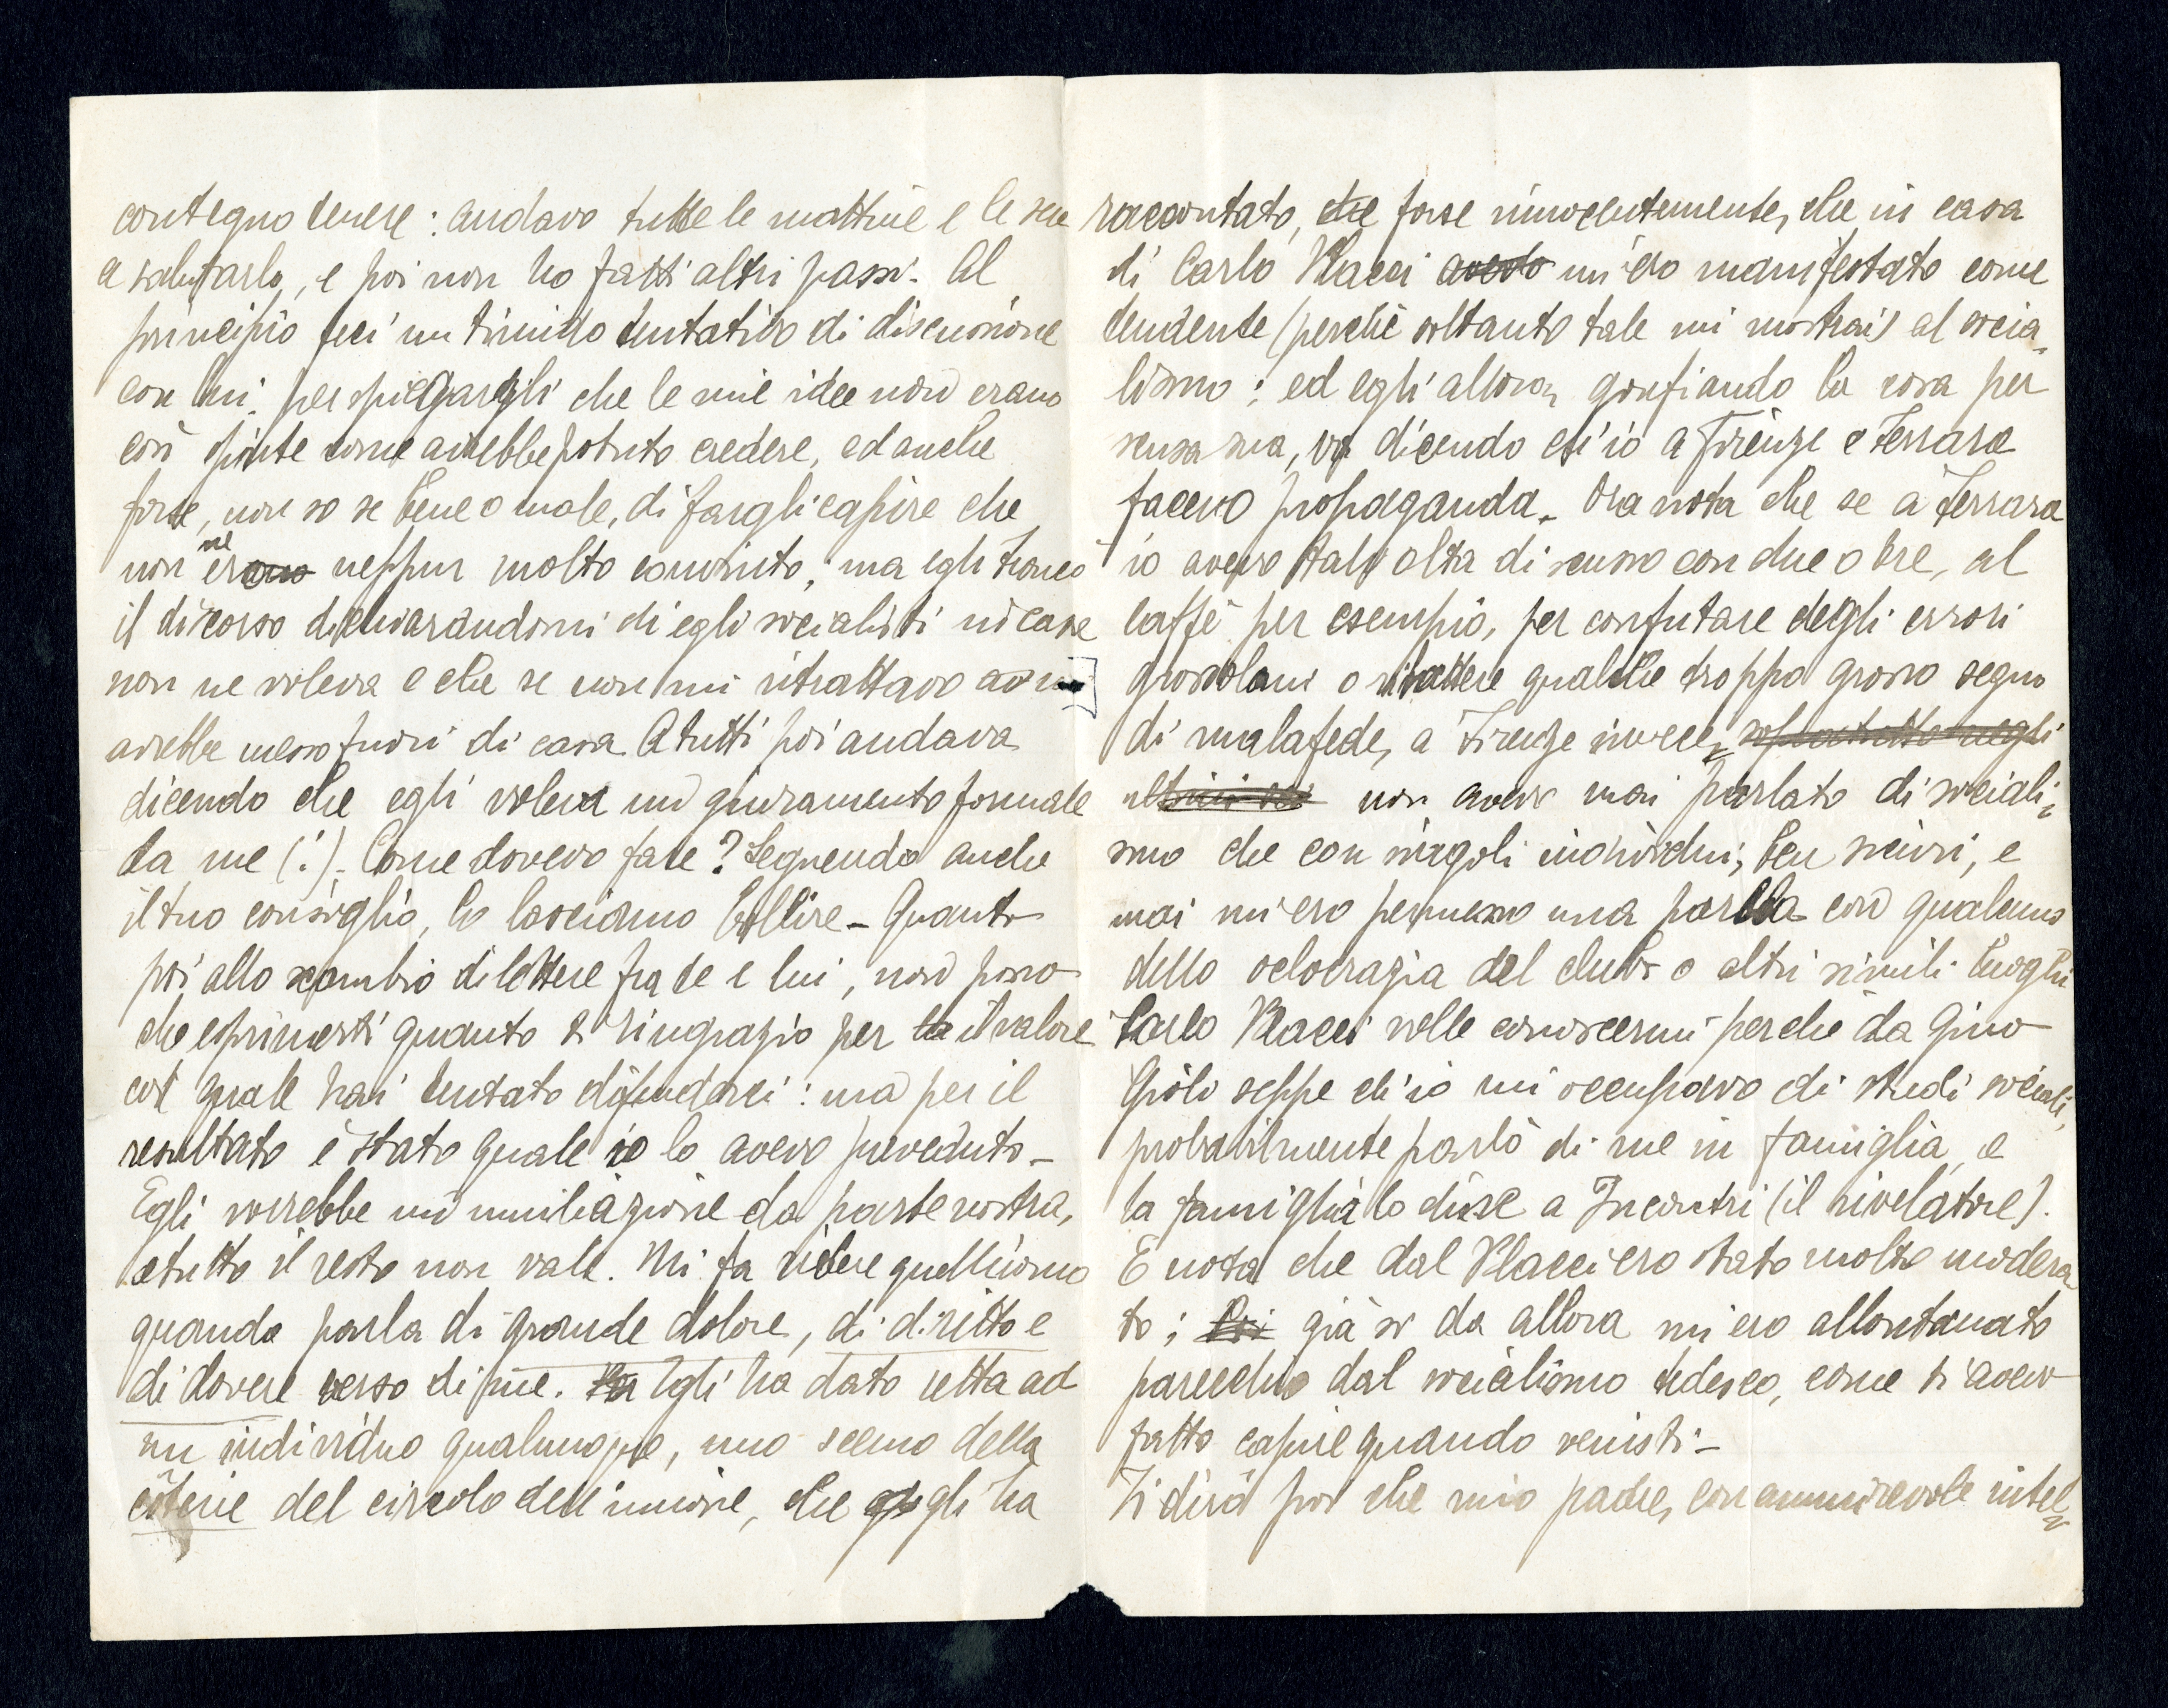 contegno tenere: andavo tutte le mattine e le sere
a salutarlo, e poi non ho fatti altri passi. Al
principio feci un timido tentativo di discussione
con lui, per spiegargli che le mie idee non erano
così spinte come avrebbe potuto credere, ed anche
forse, non so se bene o male, di fargli capire che
non ne ero neppur molto convinto; ma egli troncò
il discorso dichiarandomi di egli socialisti in casa
non ne voleva e che se non mi ritrattavo
avrebbe messo fuori di casa. A tutti poi andava
dicendo che egli voleva un giuramento formale
da me (!). Come dovevo fare? Seguendo anche
il tuo consiglio, lo lasciamo bollire - Quanto
poi allo scambio di lettere fra te e lui, non posso
che esprimerti quanto ti ringrazio per la il valore
col quale hai tentato difenderci: ma per il
resultato è stato quale io lo avevo preveduto -
Egli vorrebbe un umiliazione da parte nostra,
e tutto il resto non vale. Mi fa ridere quell'uomo
quando parla di grande dolore, di diritto e
di dovere verso di me. Egli ha dato retta ad
un individuo qualunque, uno scemo della
côterie del circolo dell'unione, che gli ha
raccontato, che forse innocentemente, che in casa
di Carlo Placci avevo m'ero manifestato come
tendente (perchè soltanto tale mi mostrai) al socia-
lismo; ed egli allora, gonfiando la cosa per
scusa sua, va dicendo ch'io a Firenze e Ferrara
facevo propaganda. Ora nota che se a Ferrara
io avevo talvolta discusso con due o tre, al
caffè per esempio, per confutare degli errori
grossolani o ribattere qualche troppo grosso segno
di malafede, a Firenze invece, sopratutto negli
ultimi non avevo mai parlato di sociali-
smo che con singoli individui, ben sicuri, e
mai mi ero permesso una parola con qualcuno
della oclocrazia del club o altri simili luoghi
Carlo Placci volle conoscermi perchè da Gino
seppe ch'io mi occupavo di studi sociali,
probabilmente parlò di me in famiglia, e
la famiglia lo disse a Incontri (il rivelatore).
E nota che dal Placci ero stato molto modera-
to; già sr da allora mi ero allontanato
parecchio dal socialismo tedesco, come ti avevo
fatto capire quando venisti -
Ti dirò poi che mio padre, con ammirevole intel-